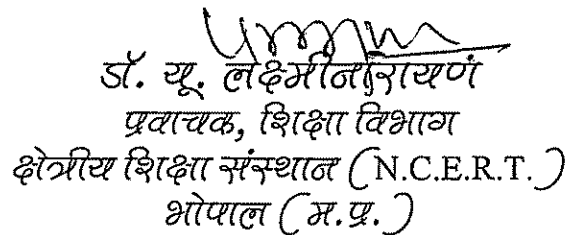 डॉ. यू. लक्ष्मीनारायणं
प्रवाचक, शिक्षा विभाग
क्षेत्रीय शिक्षा संस्थान (N.C.E.R.T.)
भोपाल (म.प्र.)